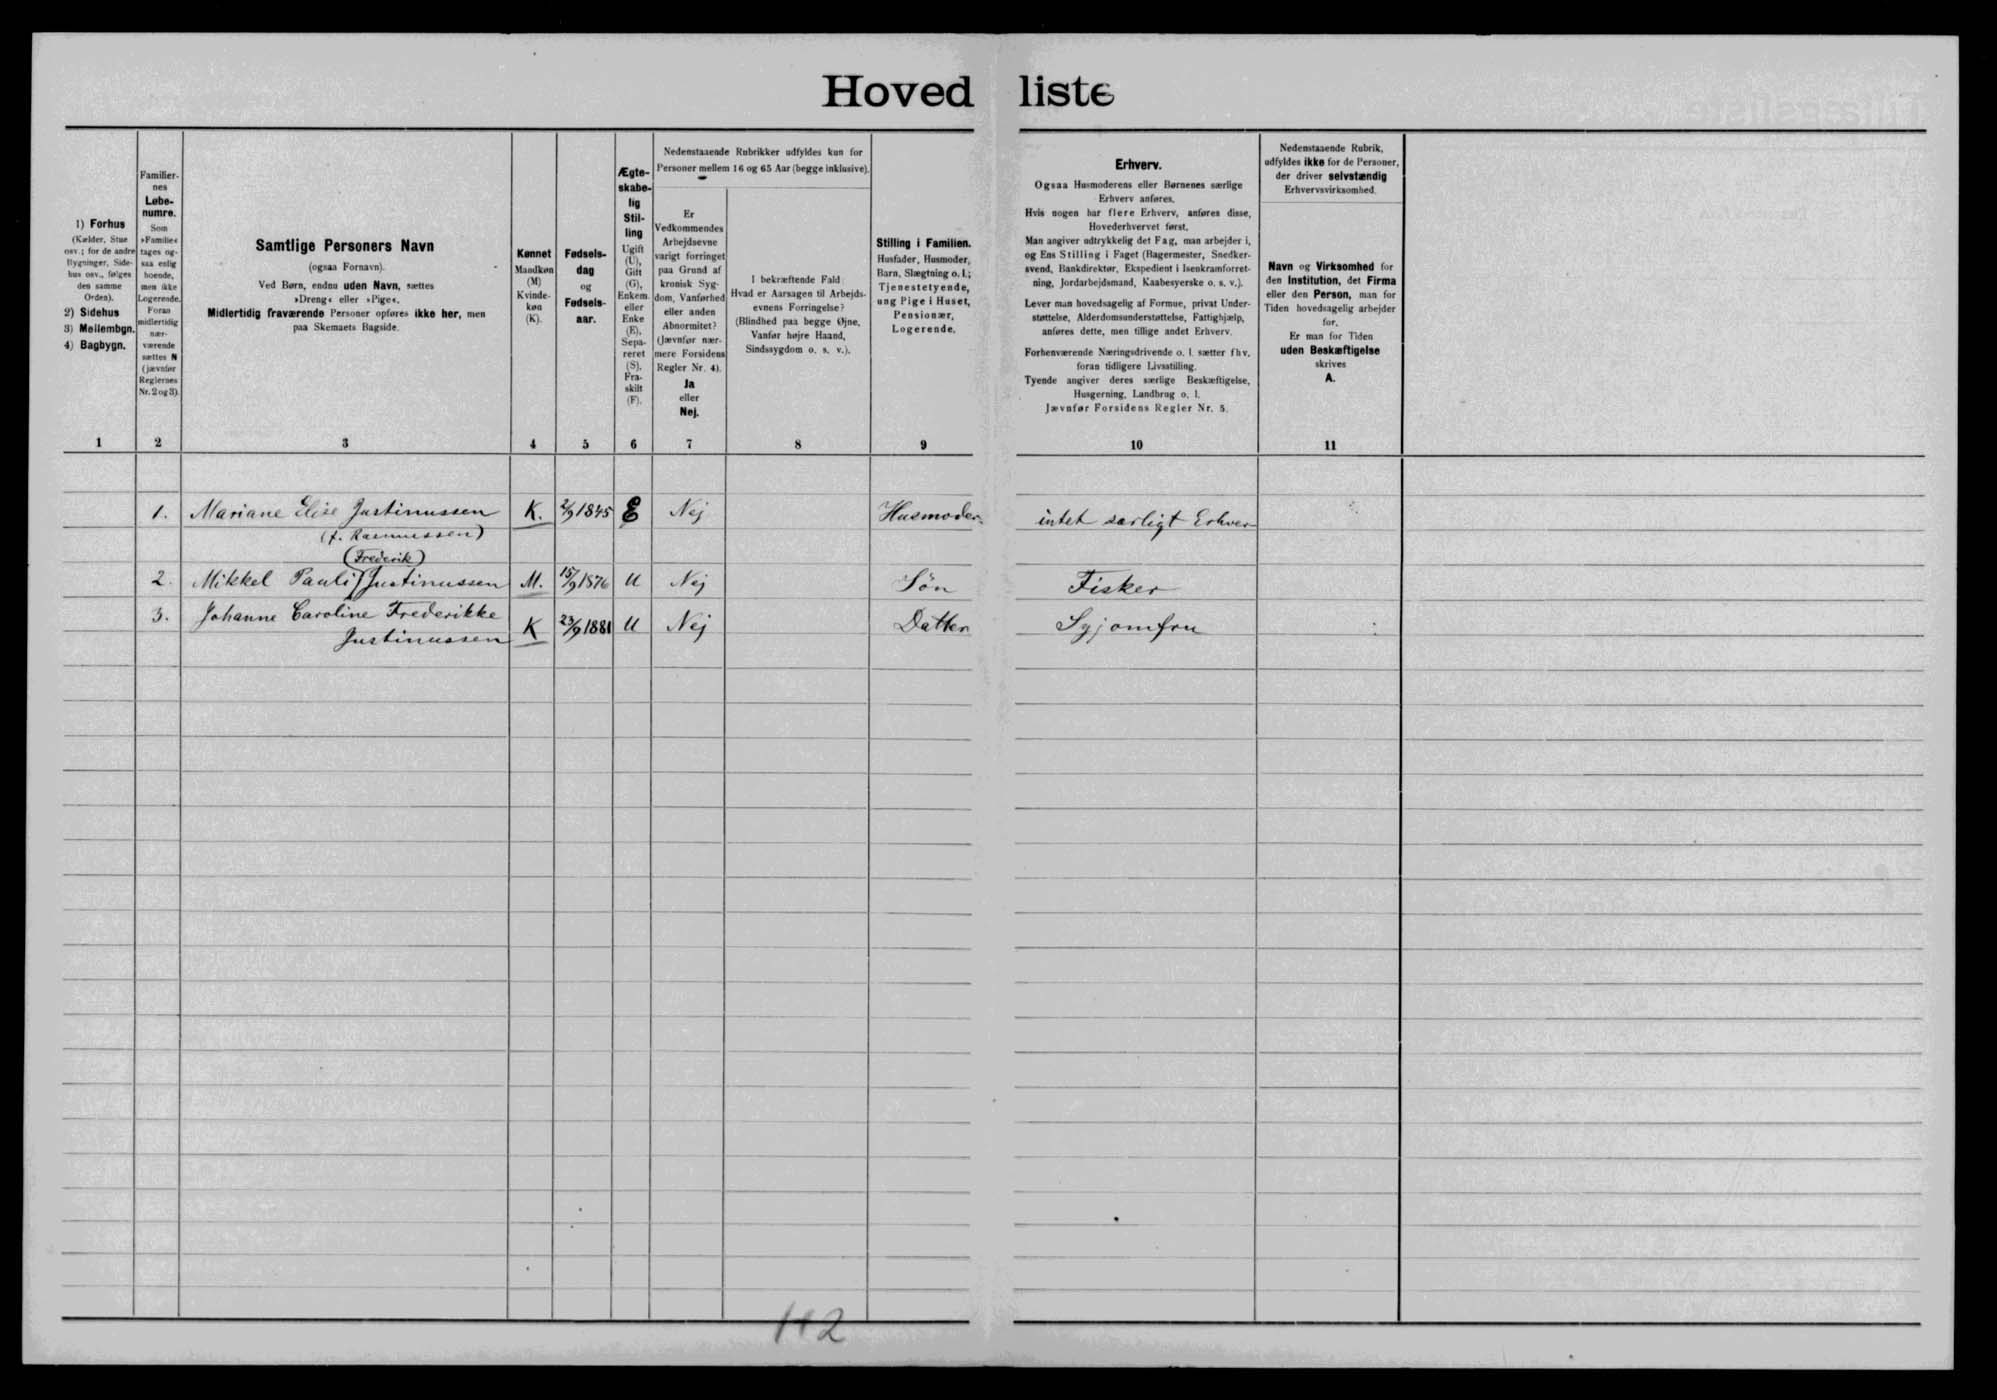 Hovedliste
1) Forhus
(Kælder, Stue
osv.; for de andre
Bygninger, Side-
hus osv., følges
den samme
Orden).
2) Sidehus
3) Mellembgn.
4) Bagbygn.
Familier-
nes
Løbe-
numre.
Som
»Familie«
tages og-
saa enlig
boende,
men ikke
Logerende.
Foran
midlertidig
nær-
værende
sættes N
(jævnfør
Reglernes
Nr. 2 og 3).
Samtlige Personers Navn
(ogsaa Fornavn).
Ved Børn, endnu uden Navn, sættes
»Dreng« eller »Pige«.
Midlertidig fraværende Personer opføres ikke her, men
paa Skemaets Bagside.
Kønnet
Mandkøn
(M)
Kvinde-
køn
(K).
Fødsels-
dag
og
Fødsels-
aar.
Ægte-
skabe-
lig
Stil-
ling
Ugift
(U),
Gift
(G),
Enkem.
eller
Enke
(E),
Sepa-
reret
(S),
Fra-
skilt
(F).
Nedenstaaende Rubrikker udfyldes kun for
Personer mellem 16 og 65 Aar (begge inklusive).
Er
Vedkommendes
Arbejdsevne
varigt forringet
paa Grund af
kronisk Syg-
dom, Vanførhed
eller anden
Abnormitet?
(Jævnfør nær-
mere Forsidens
Regler Nr. 4).
Ja
eller
Nej.
I bekræftende Fald:
Hvad er Aarsagen til Arbejds-
evnens Forringelse?
(Blindhed paa begge Øjne,
Vanfør højre Haand,
Sindssygdom o. s. v.).
Stilling i Familien.
Husfader, Husmoder,
Barn, Slægtning o. l.;
Tjenestetyende,
ung Pige i Huset,
Pensionær,
Logerende.
Erhverv.
Ogsaa Husmoderens eller Børnenes særlige
Erhverv anføres.
Hvis nogen har flere Erhverv, anføres disse,
Hovederhvervet først.
Man angiver udtrykkelig det Fag, man arbejder i,
og Ens Stilling i Faget (Bagermester, Snedker-
svend, Bankdirektør, Ekspedient i Isenkramforret-
ning, Jordarbejdsmand, Kaabesyerske o. s. v.).
Lever man hovedsagelig af Formue, privat Under-
støttelse, Alderdomsunderstøttelse, Fattighjælp,
anføres dette, men tillige andet Erhverv.
Forhenværende Næringsdrivende o. l. sætter fhv.
foran tidligere Livsstilling.
Tyende angiver deres særlige Beskæftigelse,
Husgerning, Landbrug o. l.
Jævnfør Forsidens Regler Nr. 5.
Nedenstaaende Rubrik,
udfyldes ikke for de Personer,
der driver selvstændig
Erhvervsvirksomhed.
Navn og Virksomhed for
den Institution, det Firma
eller den Person, man for
Tiden hovedsagelig arbejder
for.
Er man for Tiden
uden Beskæftigelse
skrives
A.
1 2 3 4 5 6 7 8 9 10 11
1. Mariane Elise Justinussen K. 2/9 1845 E Nej Husmoder intet særligt Erhverv
(f. Rasmussen)
(Frederik)
2. Mikkel Pauli Justinussen M. 15/9 1876 U Nej Søn Fisker
3. Johanne Caroline Frederikke
Justinussen K 23/9 1881 U Nej Datter Syjomfru